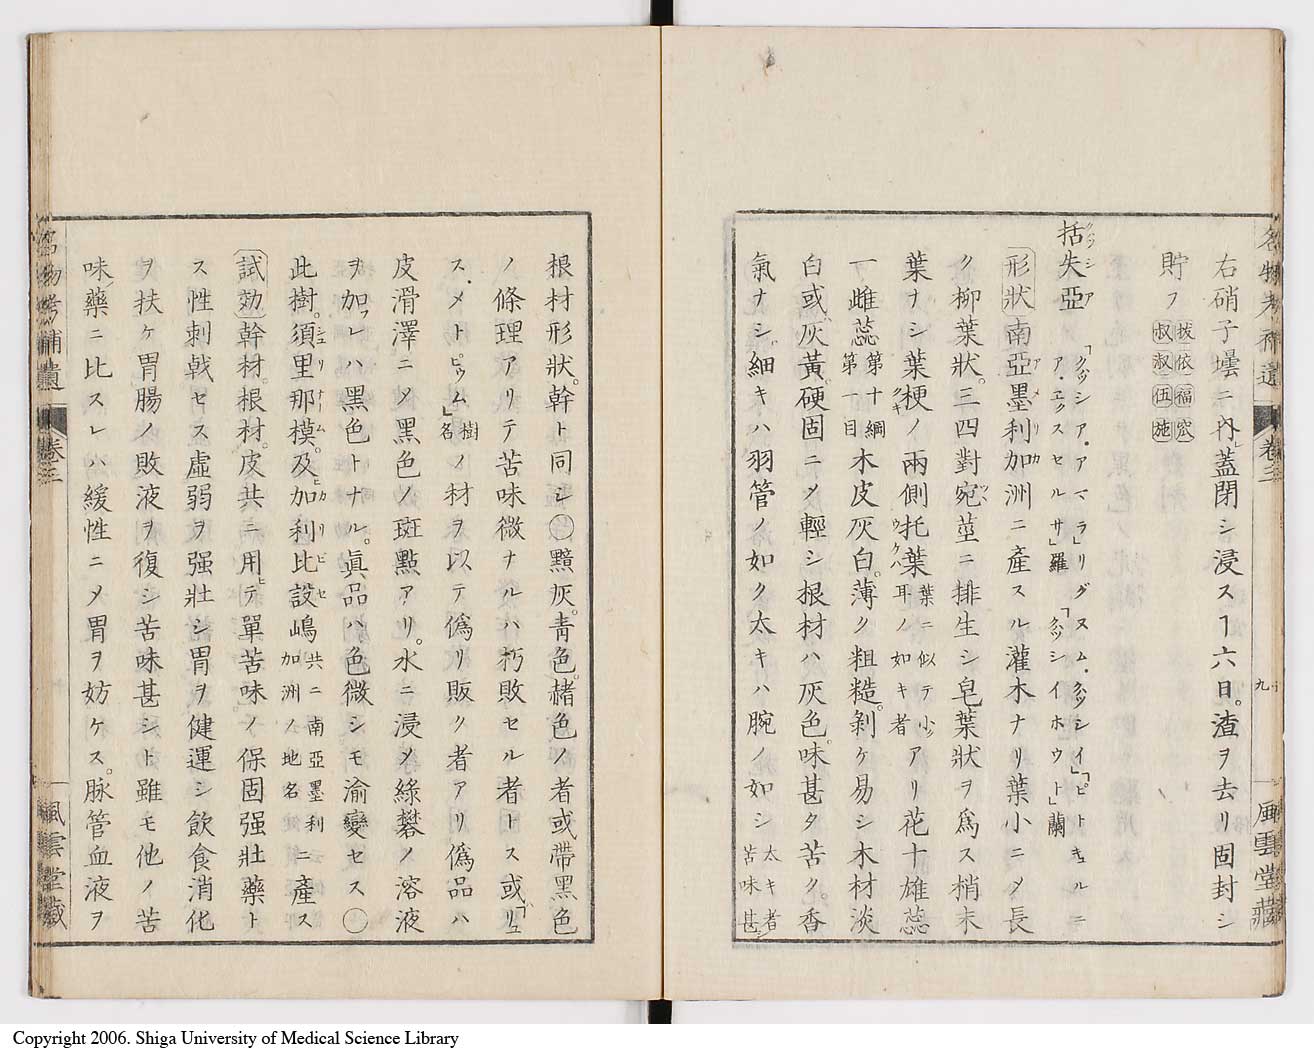 名物考補遺 卷三 十九 風雲堂藏
右硝子壜ニ内レ蓋閉シ浸スヿ六日。渣ヲ去リ固封シ
貯フ 拔依福宓 叔淑伍施
括失亞 「クヮッシア・アマラ」リグヌム・クヮッシイ」ピトキュルニ
ア・エクスセルサ」羅 「クヮッシイホウト」蘭
形狀 南亞墨利加洲ニ產スル灌木ナリ葉小ニメ長
ク柳葉狀。三四對宛莖ニ排生シ皂葉狀ヲ爲ス梢末
葉ナシ葉梗ノ兩側托葉 葉ニ似テ小ッ耳ノ如キ者 アリ花十雄蕊
一雌蕊 第十綱第一目 木皮灰白。薄ク粗糙。剝ケ易シ木材淡
白或ハ灰黃。硬固ニメ輕シ根材ハ灰色。味甚タ苦ク。香
氣ナシ細キハ羽管ノ如ク太キハ腕ノ如シ 太キ者ハ苦味甚シ
根材形狀。幹ト同シ〇黷灰。靑色。赭色ノ者或帶黑色
ノ條理アリテ苦味微ナルハ朽敗セル者トス或「リュ
ス・メトピゥム」樹名ノ材ヲ以テ僞リ販ク者アリ僞品ハ
皮滑澤ニメ黑色ノ斑㸃アリ。水ニ浸メ綠礬ノ溶液
ヲ加フレハ黑色トナル。眞品ハ色微シモ渝變セス〇
此樹。須里那模。及ヒ加利比設嶋 共ニ南亞墨利加洲ノ地名 ニ產ス
試効 幹材。根材。皮共ニ用ヒテ單苦味ノ保固强壯藥ト
ス性刺戟セス虛弱ヲ强壯シ胃ヲ健運シ飮食消化
ヲ扶ケ胃腸ノ敗液ヲ復シ苦味甚シト雖モ他ノ苦
味藥ニ比スレハ緩性ニメ胃ヲ妨ケス。脉管血液ヲ
名物考補遺 卷三 風雲堂藏
Copyright 2006. Shiga University of Medical Science Library